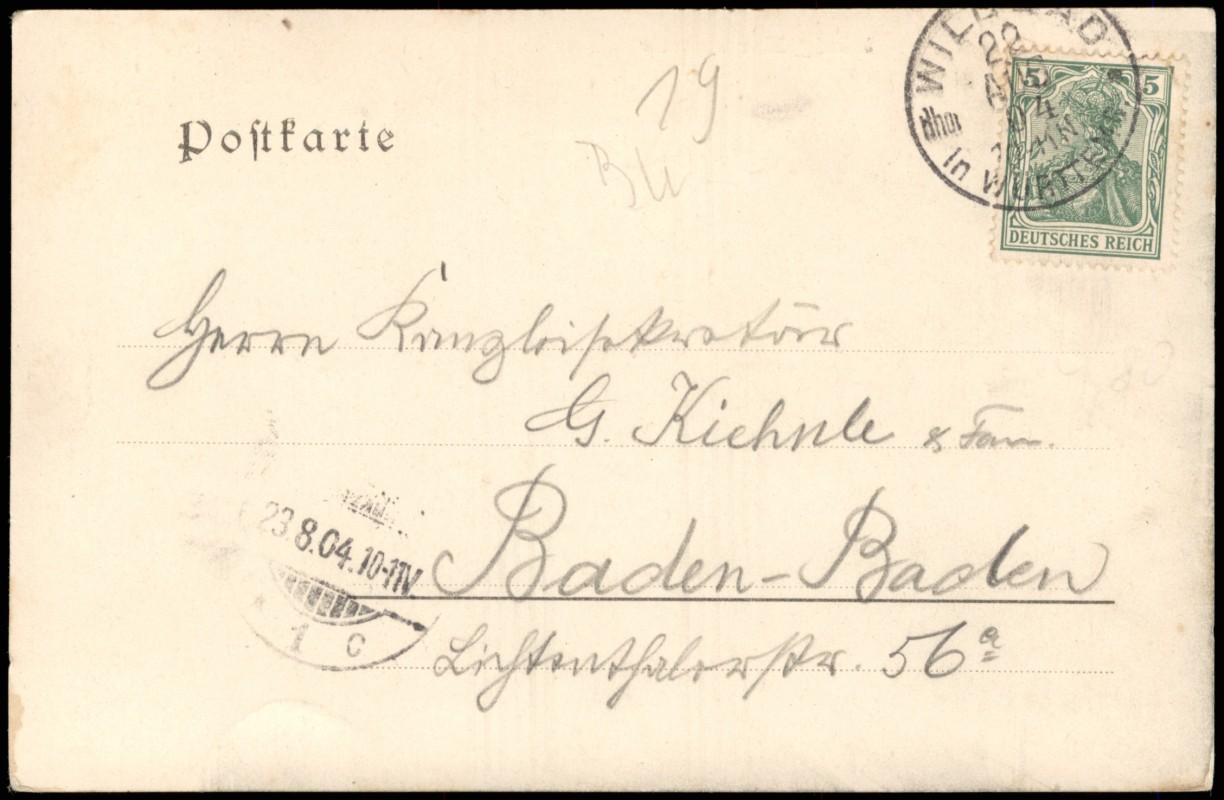 Postkarte
19
WILDBAD
22
AUG
04
In WÜRTTEMB.
5 5
DEUTSCHES REICH
Herrn Kanzleisekretär
G. Kiehnle & Fam.
Baden-Baden
Lichtenthalerstr. 56a
23 8.04.10-11V
1 c